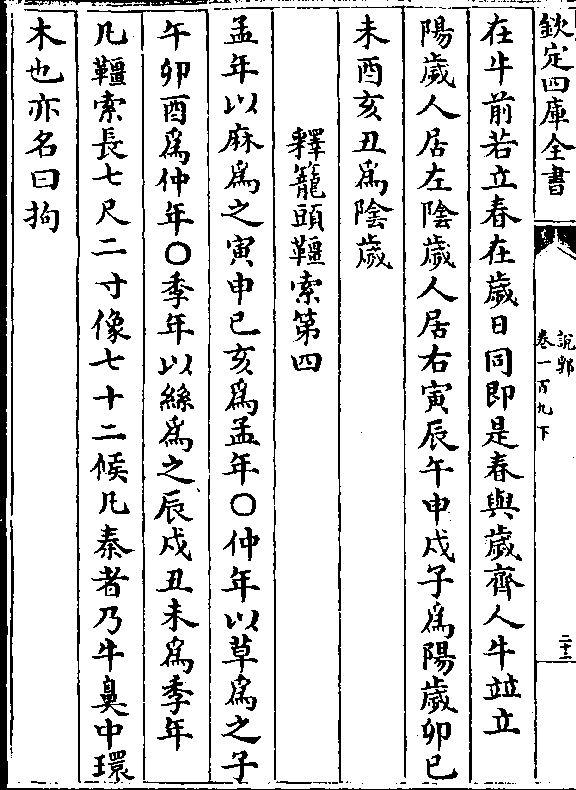 欽定四庫全書
說郛
卷一百九下
二十二
在牛前若立春在歲日同即是春與歲齊人牛竝立
陽歲人居左陰歲人居右寅辰午申戌子為陽歲卯巳
未酉亥丑為陰歲
釋籠頭韁索第四
孟年以麻為之寅申巳亥為孟年○仲年以草為之子
午卯酉為仲年○季年以絲為之辰戌丑未為季年
凡韁索長七尺二寸像七十二候凡秦者乃牛鼻中環
木也亦名曰拘